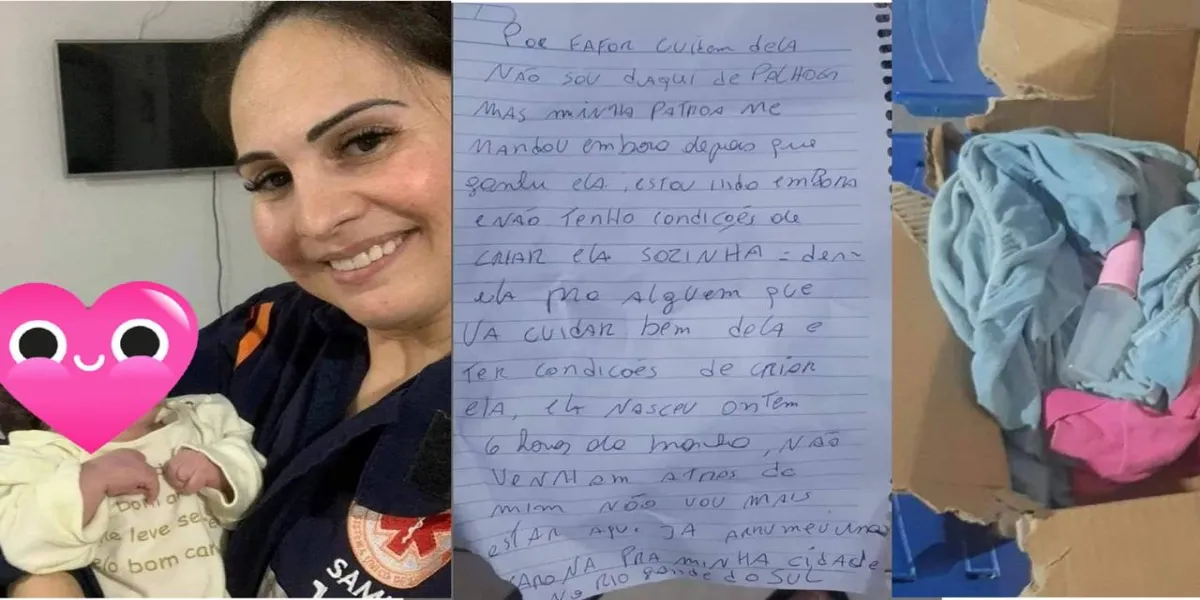 Por FAFOR Cuidem dela
NÃO SOU daqui de PALHOÇA
MAS MINHA PATROA ME
MANDOU embora depois que
ganhei ela, estou indo emBora
e NÃO TENHO condições de
CRIAR ela SOZINHA = den-
ela pro Alguem que
VA CUIDAR bem dela e
TER condições de CRIAR
ela, ela NASCEU ONTEM
6 horas da manha, NÃO
VENHAM ATRAS de
mim NÃO VOU MAIS
estAR AQUI. JA ARRUMEI UMA
CARONA PRA MINHA CIdAde
NO RIO gande do SUL
bom
leve se
elo bom
SAM